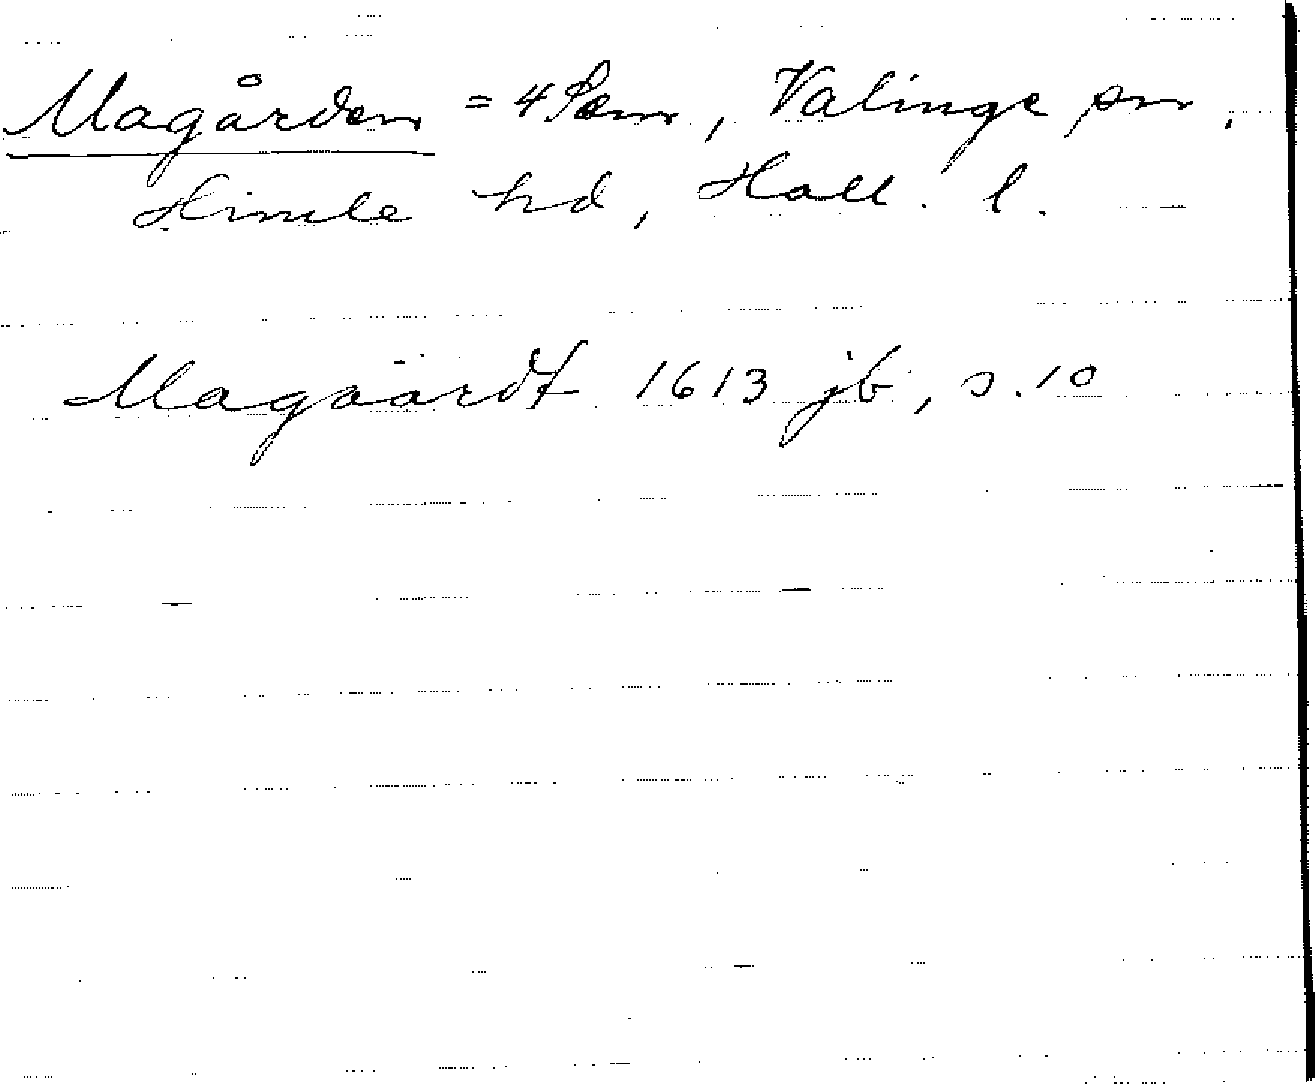 Magården = 4 , Valinge sn,
Himle hd, Hall. l.
Magaardt 1613 jb, s. 10